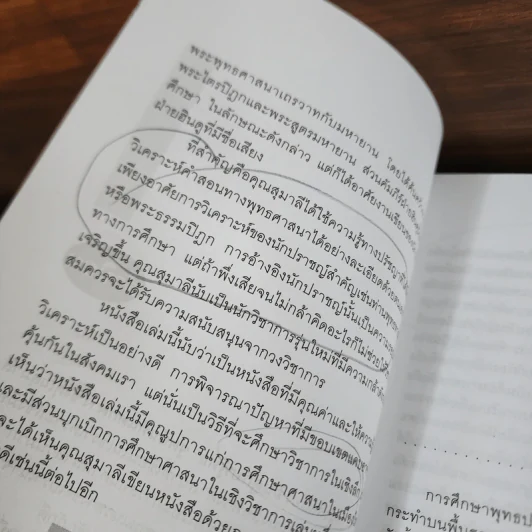 พระพุทธศาสนาเถรวาทกับมหายาน โดยได้
พระไตรปิฎกและพระสูตรมหายาน ส่วนคัมภีร์
ศึกษา ในลักษณะดังกล่าว แต่ก็ได้อาศัยงานเขียน
ฝ่ายฮินดูที่มีชื่อเสียง
ที่สำคัญคือคุณสุมาลีได้ใช้ความรู้ทางปรัชญา
วิเคราะห์คำสอนทางพุทธศาสนาได้อย่างละเอียดด้วย
เพียงอาศัยการวิเคราะห์ของนักปราชญ์สำคัญเช่นท่านพุทธ
หรือพระธรรมปิฎก การอ้างอิงนักปราชญ์นั้นเป็นความ
ทางการศึกษา แต่ถ้าพึ่งเสียจนไม่กล้าคิดอะไรก็ไม่ช่วยให้
เจริญขึ้น คุณสุมาลีนับเป็นนักวิชาการรุ่นใหม่ที่มีความกล้า
สมควรจะได้รับความสนับสนุนจากวงวิชาการ
หนังสือเล่มนี้นับว่าเป็นหนังสือที่มีคุณค่าและให้ความ
วิเคราะห์เป็นอย่างดี การพิจารณาปัญหาที่มีขอบเขต
คุ้นกันในสังคมเรา แต่นั่นเป็นวิธีที่จะศึกษาวิชาการในเชิงลึก
เห็นว่าหนังสือเล่มนี้มีคุณูปการแก่การศึกษาศาสนาในเมือง
และมีส่วนบุกเบิกการศึกษาศาสนาในเชิงวิชาการ
จะได้เห็นคุณสุมาลีเขียนหนังสือด้วย
ดีเช่นนี้ต่อไปอีก
การศึกษาพุทธ
กระทำบนพื้น